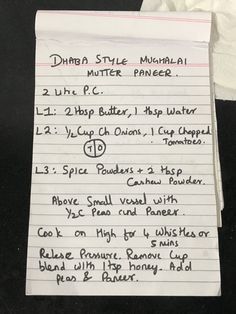 DHABA STYLE MUGHALAI
MUTTER PANEER.
2 Litre P.C.
L1: 2 tbsp Butter, 1 tbsp Water
L2: ½ Cup Ch Onions, 1 Cup Chopped
Tomatoes.
T O
L3: Spice Powders + 2 tbsp
Cashew Powder.
Above Small vessel with
½C Peas and Paneer.
Cook on High for 4 Whistles or
5 mins
Release Pressure. Remove Cup
blend with 1 tsp honey. Add
peas & Paneer.